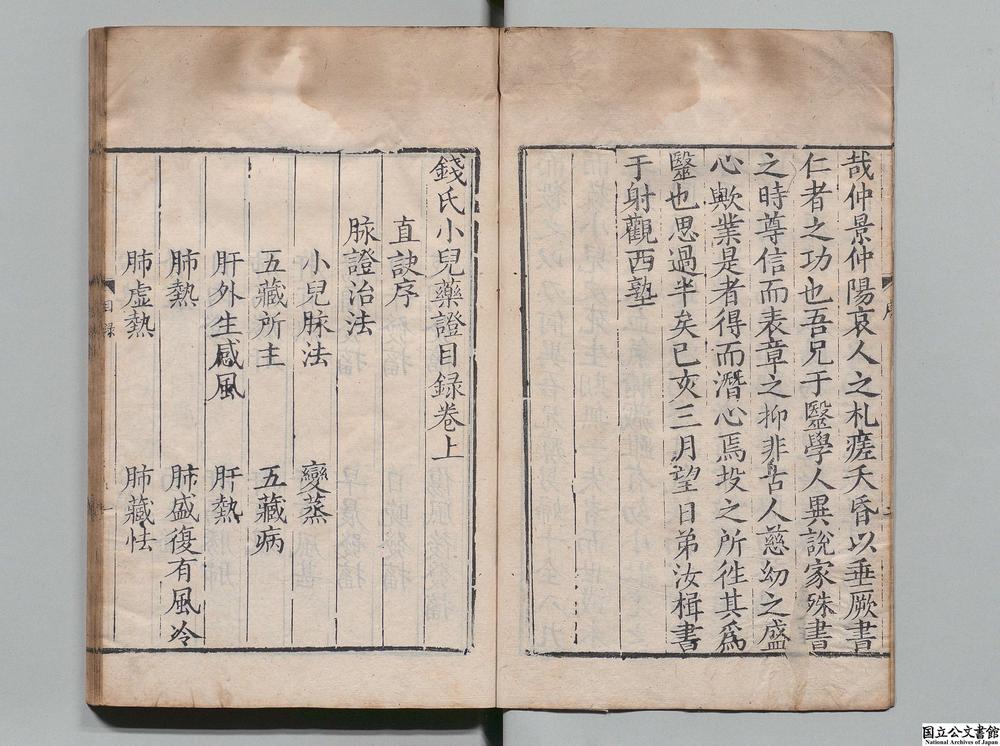 哉仲景仲陽哀人之札瘥夭昏以垂厥書
仁者之功也吾兄于毉學人異說家殊書
之時尊信而表章之抑非古人慈幼之盛
心歟業是者得而潛心焉投之所徃其爲
毉也思過半矣已亥三月望日弟汝楫書
于射觀西塾
錢氏小兒藥證目録卷上
直訣序
脉證治法
小兒脉法 變蒸
五藏所主 五藏病
肝外生感風 肝熱
肺熱 肺盛復有風冷
肺虚熱 肺藏怯
目録
国立公文書館
National Archives of Japan